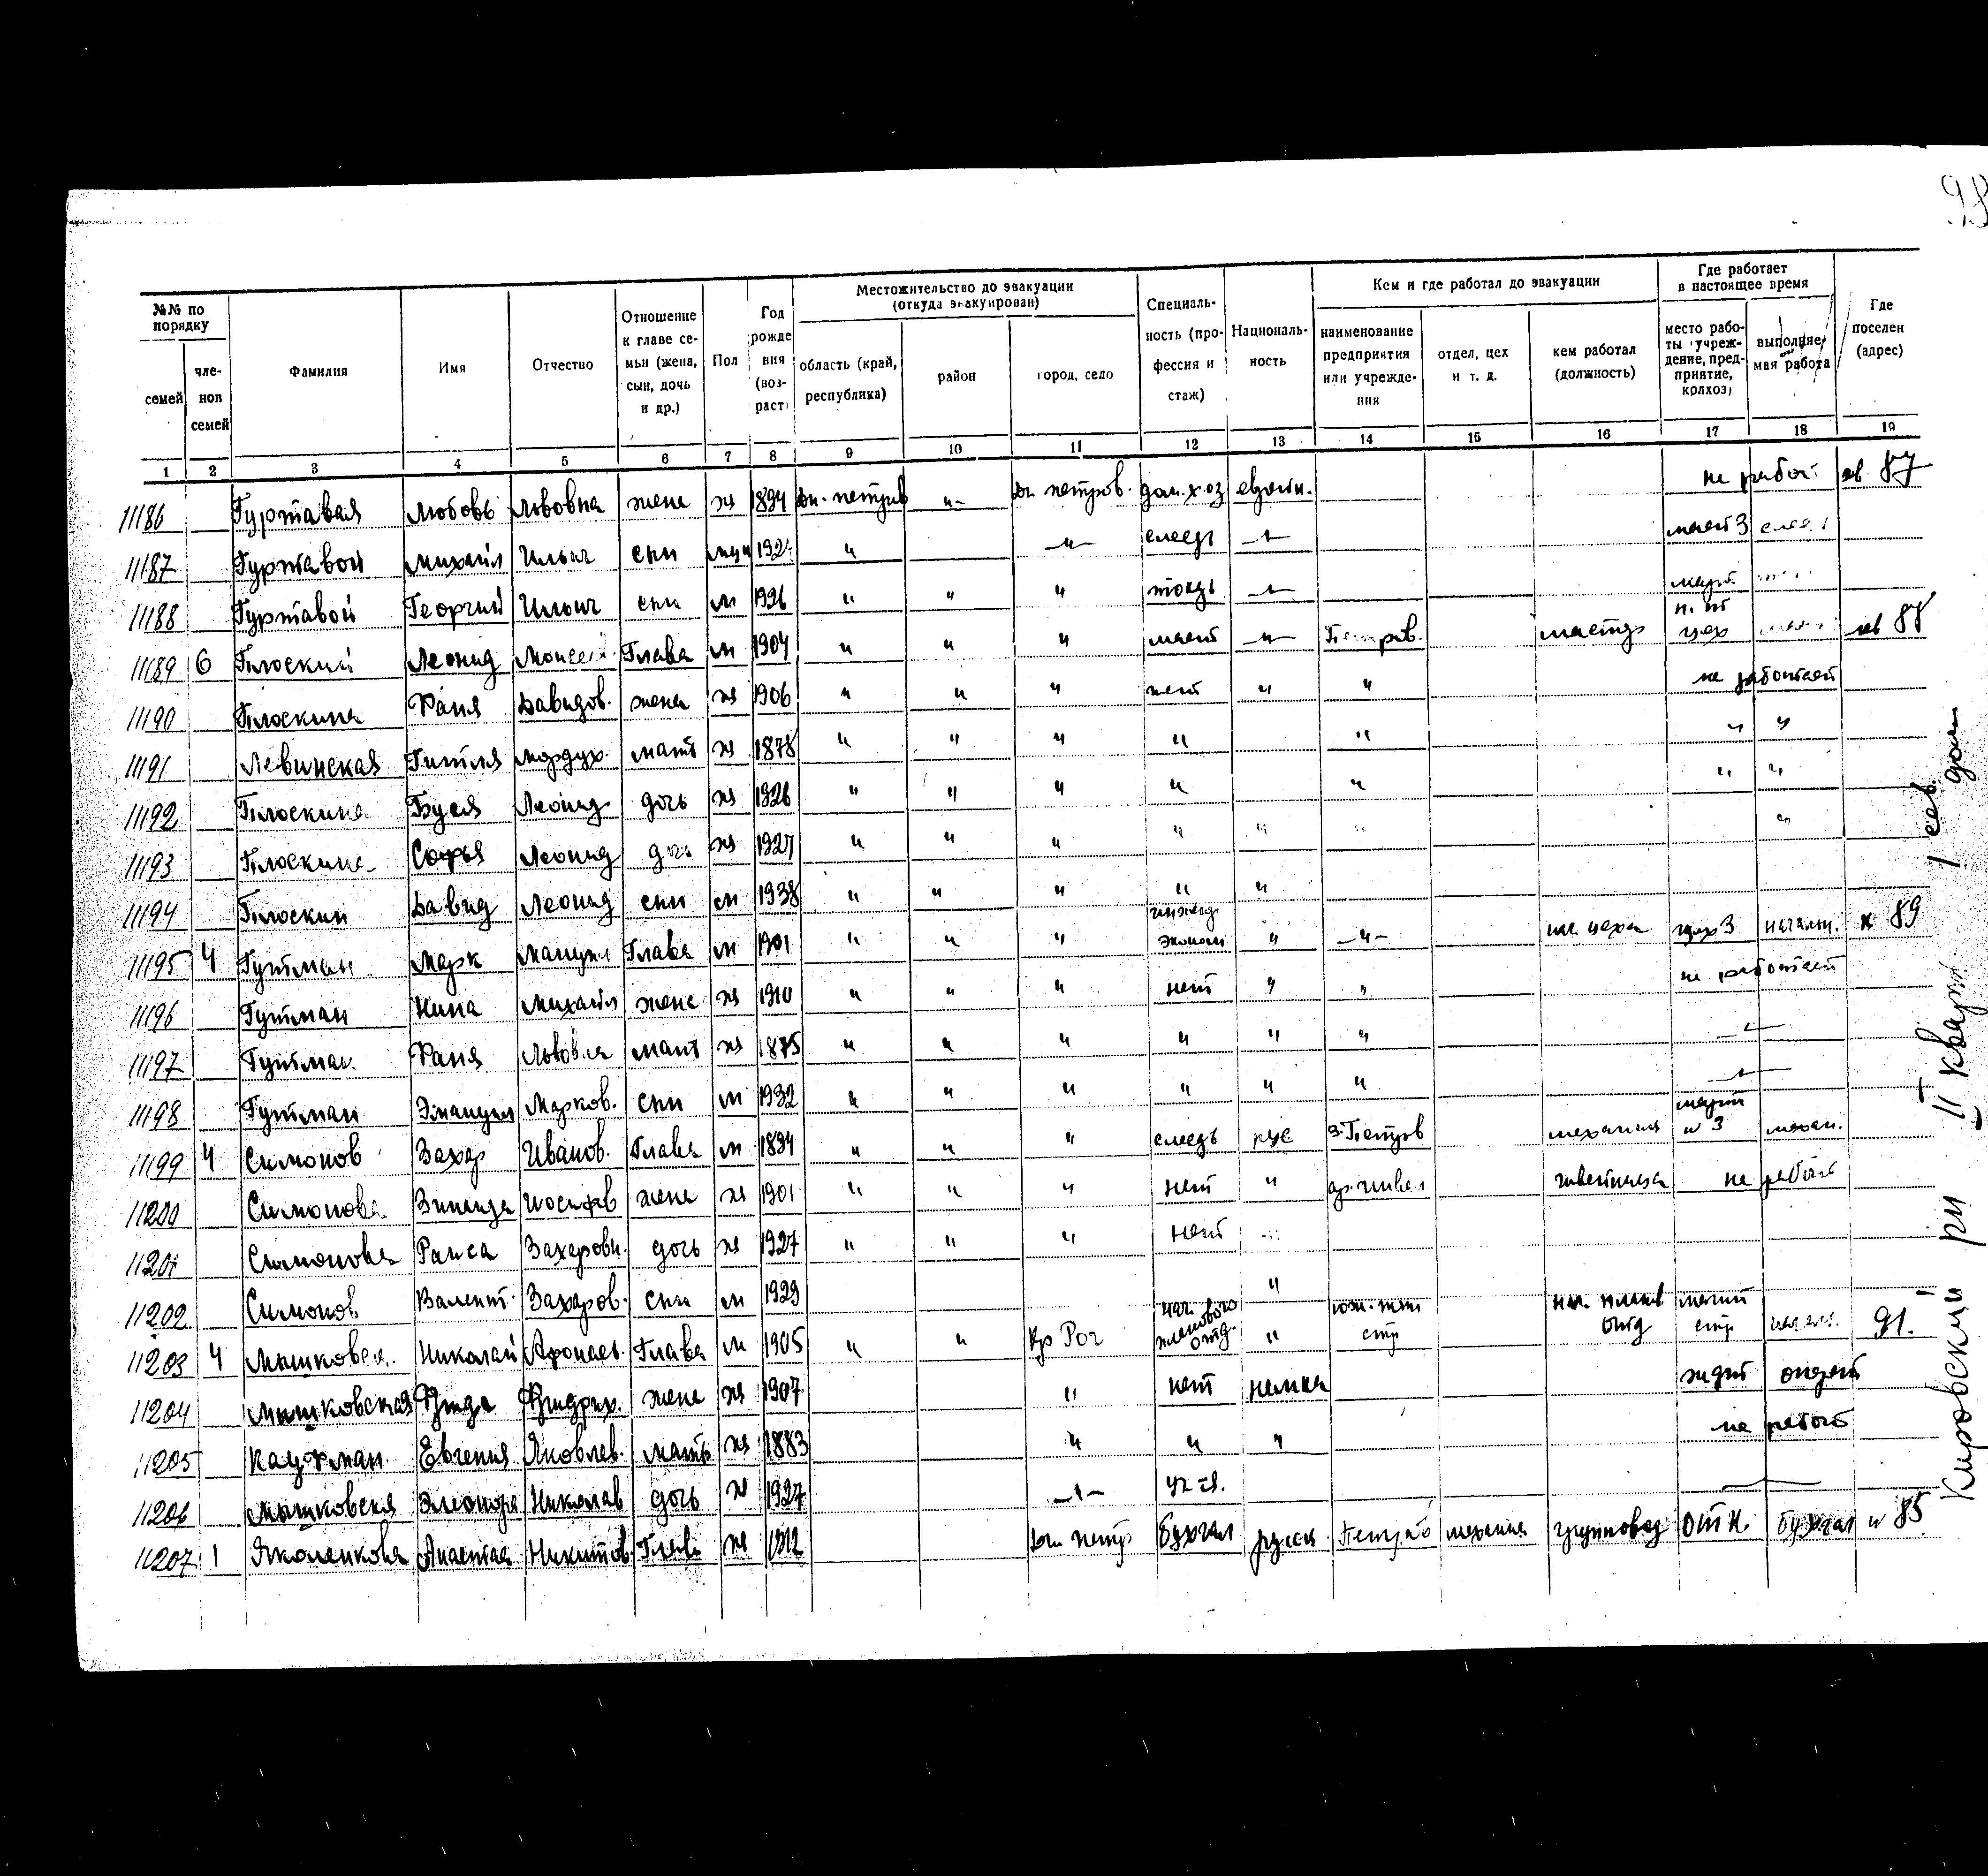 98
№№ по порядку
семей
членов семей
Фамилия
Имя
Отчество
Отношение к главе семьи (жена, сын, дочь и др.)
Пол
Год рождения (возраст)
Местожительство до эвакуации (откуда эвакуирован)
область (край, республика)
район
город, село
Специальность (профессия и стаж)
Национальность
Кем и где работал до эвакуации
наименование предприятия или учреждения
отдел, цех и т. д.
кем работал (должность)
Где работает в настоящее время
место работы (учреждение, предприятие, колхоз)
выполняемая работа
Где поселен (адрес)
1 2 3 4 5 6 7 8 9 10 11 12 13 14 15 16 17 18 19
11186 Гуртавая Любовь Львовна жена ж 1894 Дн. петров " Дн. петров. дом. хоз не работ. кв. 87
11187 Гуртавой Михаил Ильич сын муж " " слесарь "
11188 Гуртавой Георгий Ильич сын м 1926 " " " токарь "
11189 6 Плоский Леонид Моисей Глава м 1904 " " " маст " Петров. мастер цех кв 88
11190 Плоскина Фаня Давидов. жена ж 1906 " " " нет " " не работает
11191 Левинская Гитля Мордух. мать ж 1878 " " " " " " "
11192 Плоскина Буся Леонид дочь ж 1926 " " " " " " "
11193 Плоскина Софья Леонид дочь ж 1927 " " " " " " "
11194 Плоскин Давид Леонид сын м 1938 " " " " "
11195 4 Гутман Марк Мануил Глава м 1901 " " " инженер эконом " " нач цеха цех 3 начальн. к 89
11196 Гутман Нина Михайл жена ж 1910 " " " нет " " не работает
11197 Гутман Фаня Львовна мать ж 1875 " " " " " " "
11198 Гутман Эмануил Марков. сын м 1932 " " " " " " "
11199 4 Симонов Захар Иванов. Глава м 1894 " " " слесарь рус з. Петров механик № 3 механ.
11200 Симонова Зинаида Иосифов жена ж 1901 " " " нет " не работ
11201 Симонова Раиса Захаровн. дочь ж 1927 " " " нет "
11202 Симонов Валент. Захаров. сын м 1929 "
11203 4 Мышковск. Николай Афонас. Глава м 1905 " " Кр Рог нач. планового отд. " стр нач. планов отд стр 91.
11204 Мышковская Фрида Фридрих. жена ж 1907 " нет немка
11205 Кауфман Евгения Яковлев. мать ж 1883 " " " не работ
11206 Мышковская Элеонора Николав дочь ж 1927 " уч-ся. "
11207 1 Яколенкова Анастас Никитов Глава ж 1912 Дн. петр бухгал русск. Петров механич групповод ОТК. бухгал № 85
Кировский рн II кварт. 1 дом